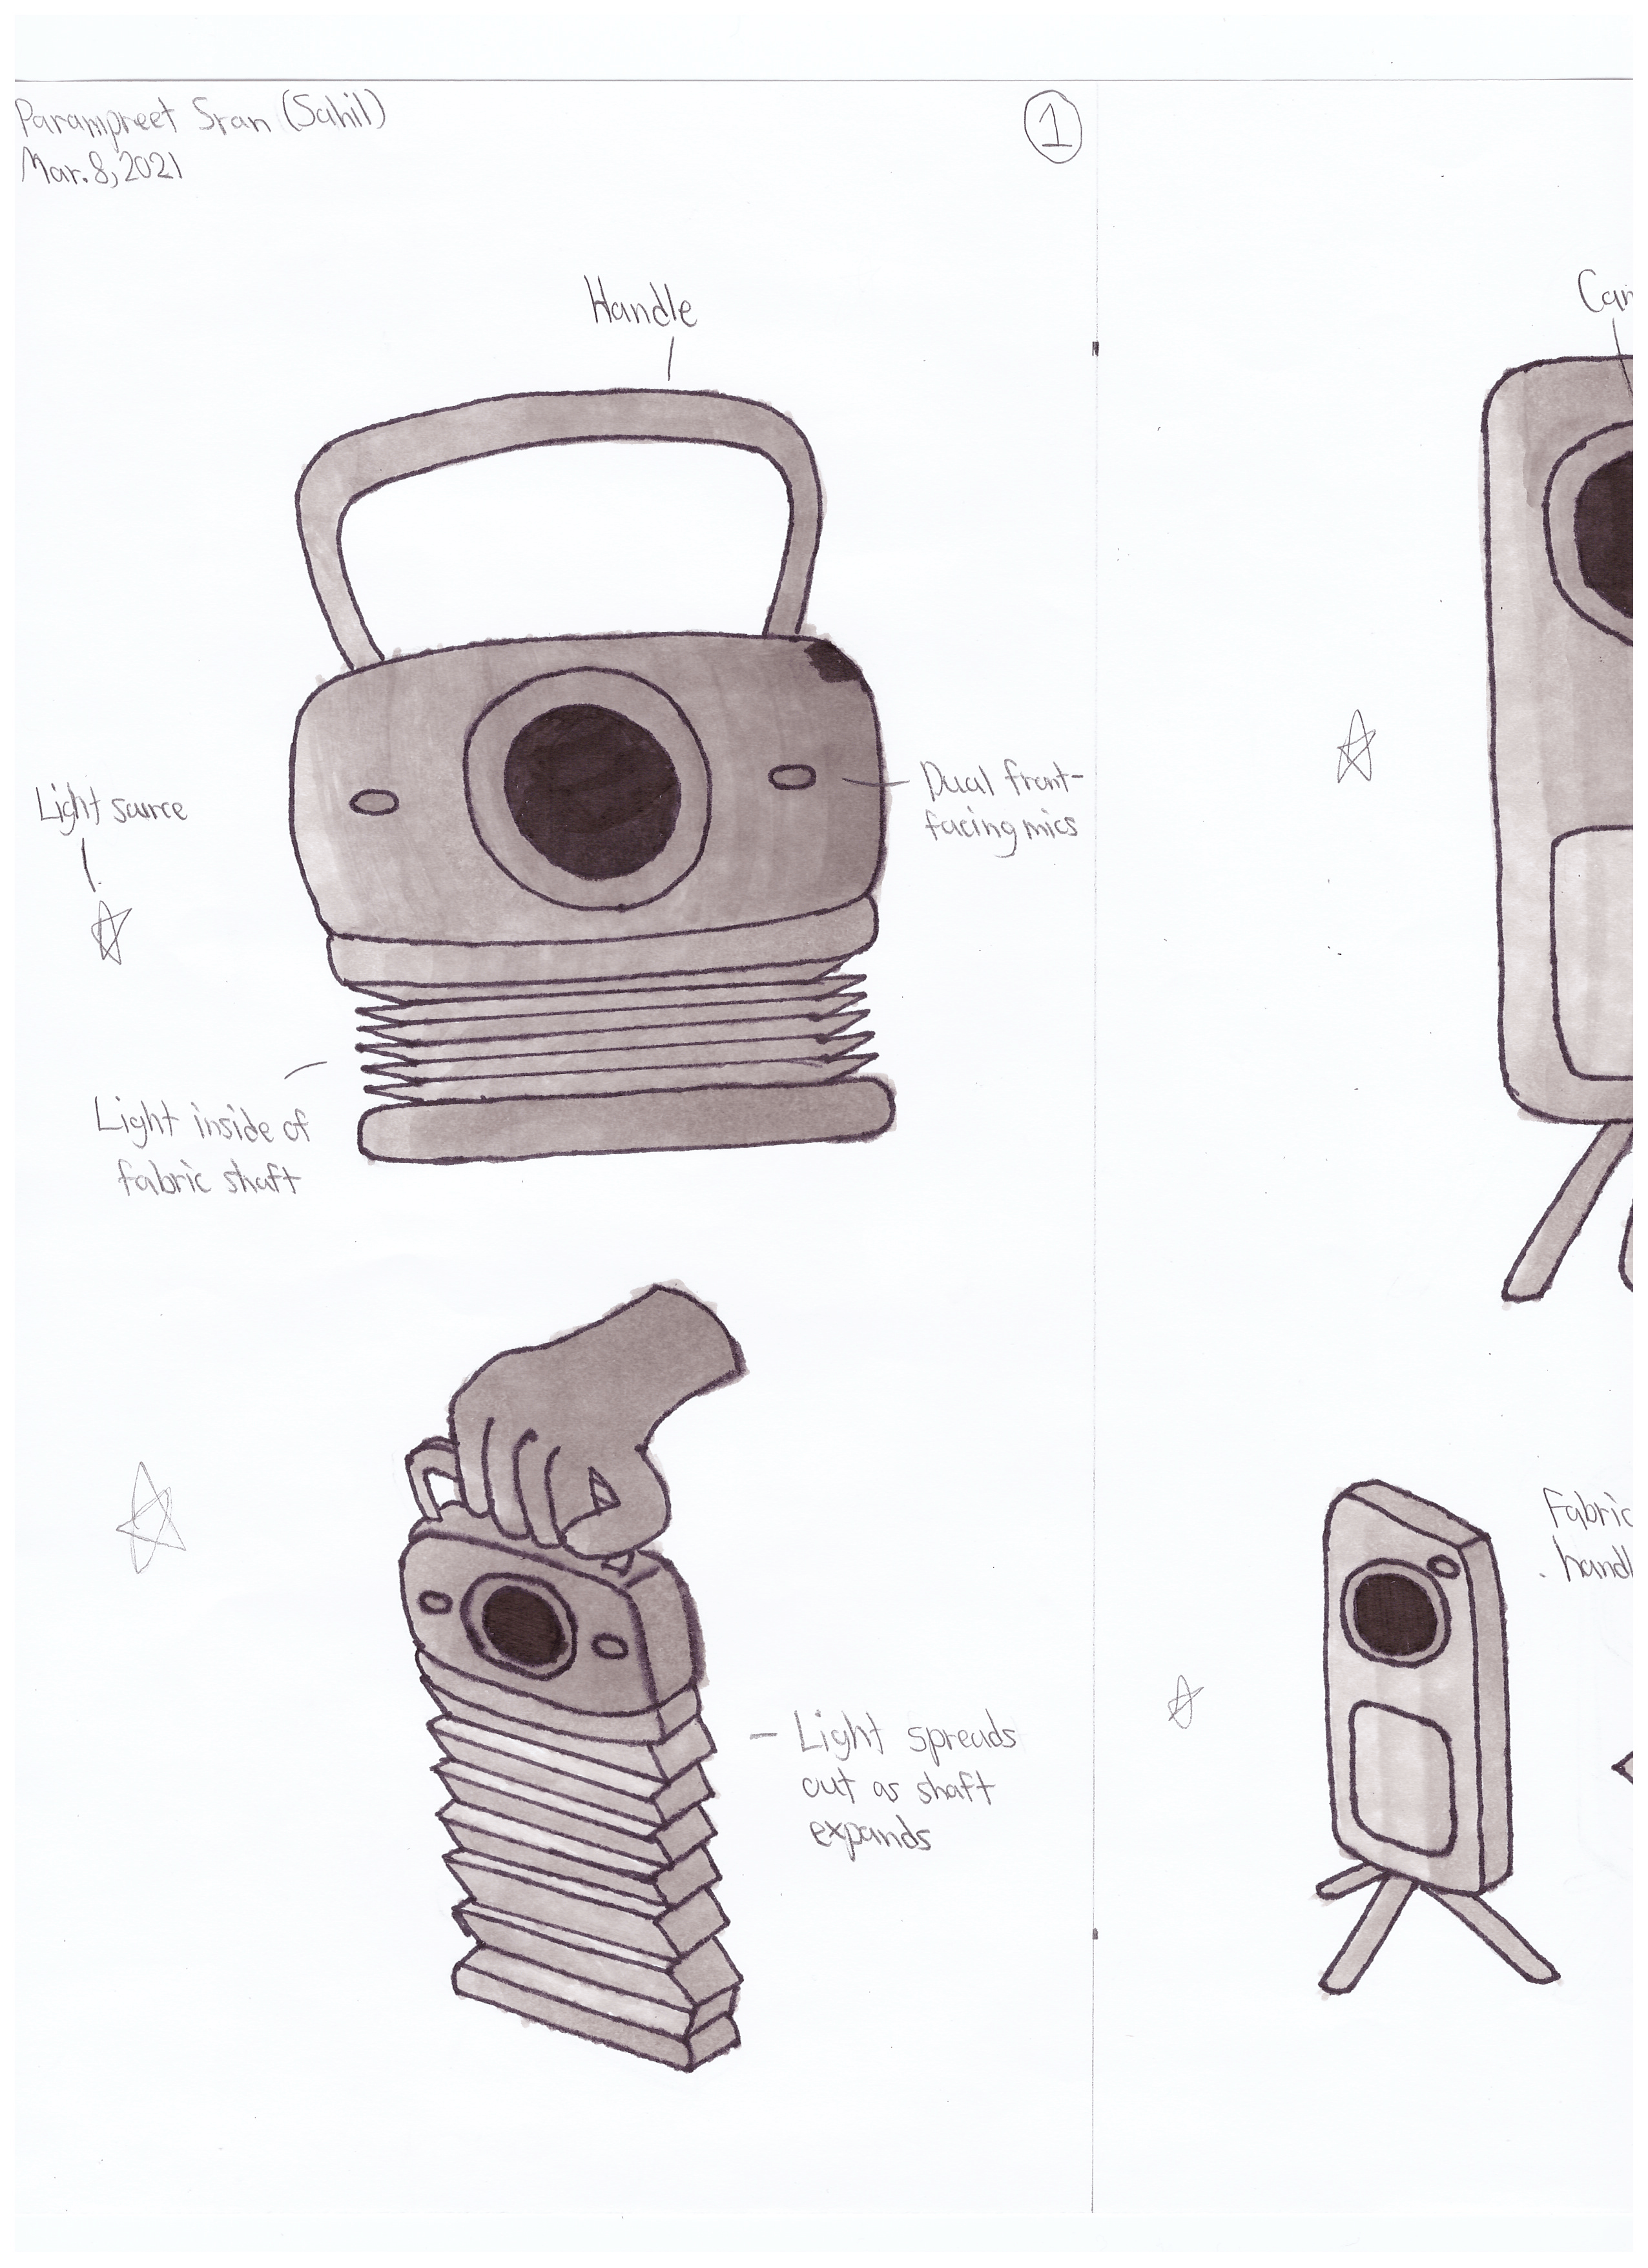 Parampreet Sran (Sahil)
Mar. 8, 2021
1
Handle
Light source
Dual front-
facing mics
Light inside of
fabric shaft
Light spreads
out as shaft
expands
Fabric